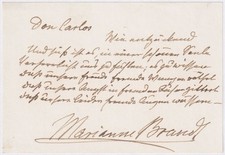 Don Carlos
Wie entzückend
Und süß ist es, in einer schönen Seele
Verherrlicht uns zu fühlen, es zu wissen
daß unsere Freude fremde Wangen röthet
daß unsere Angst in fremden Busen zittert
daß unsere Leiden fremde Augen wässern –
Marianne Brandt